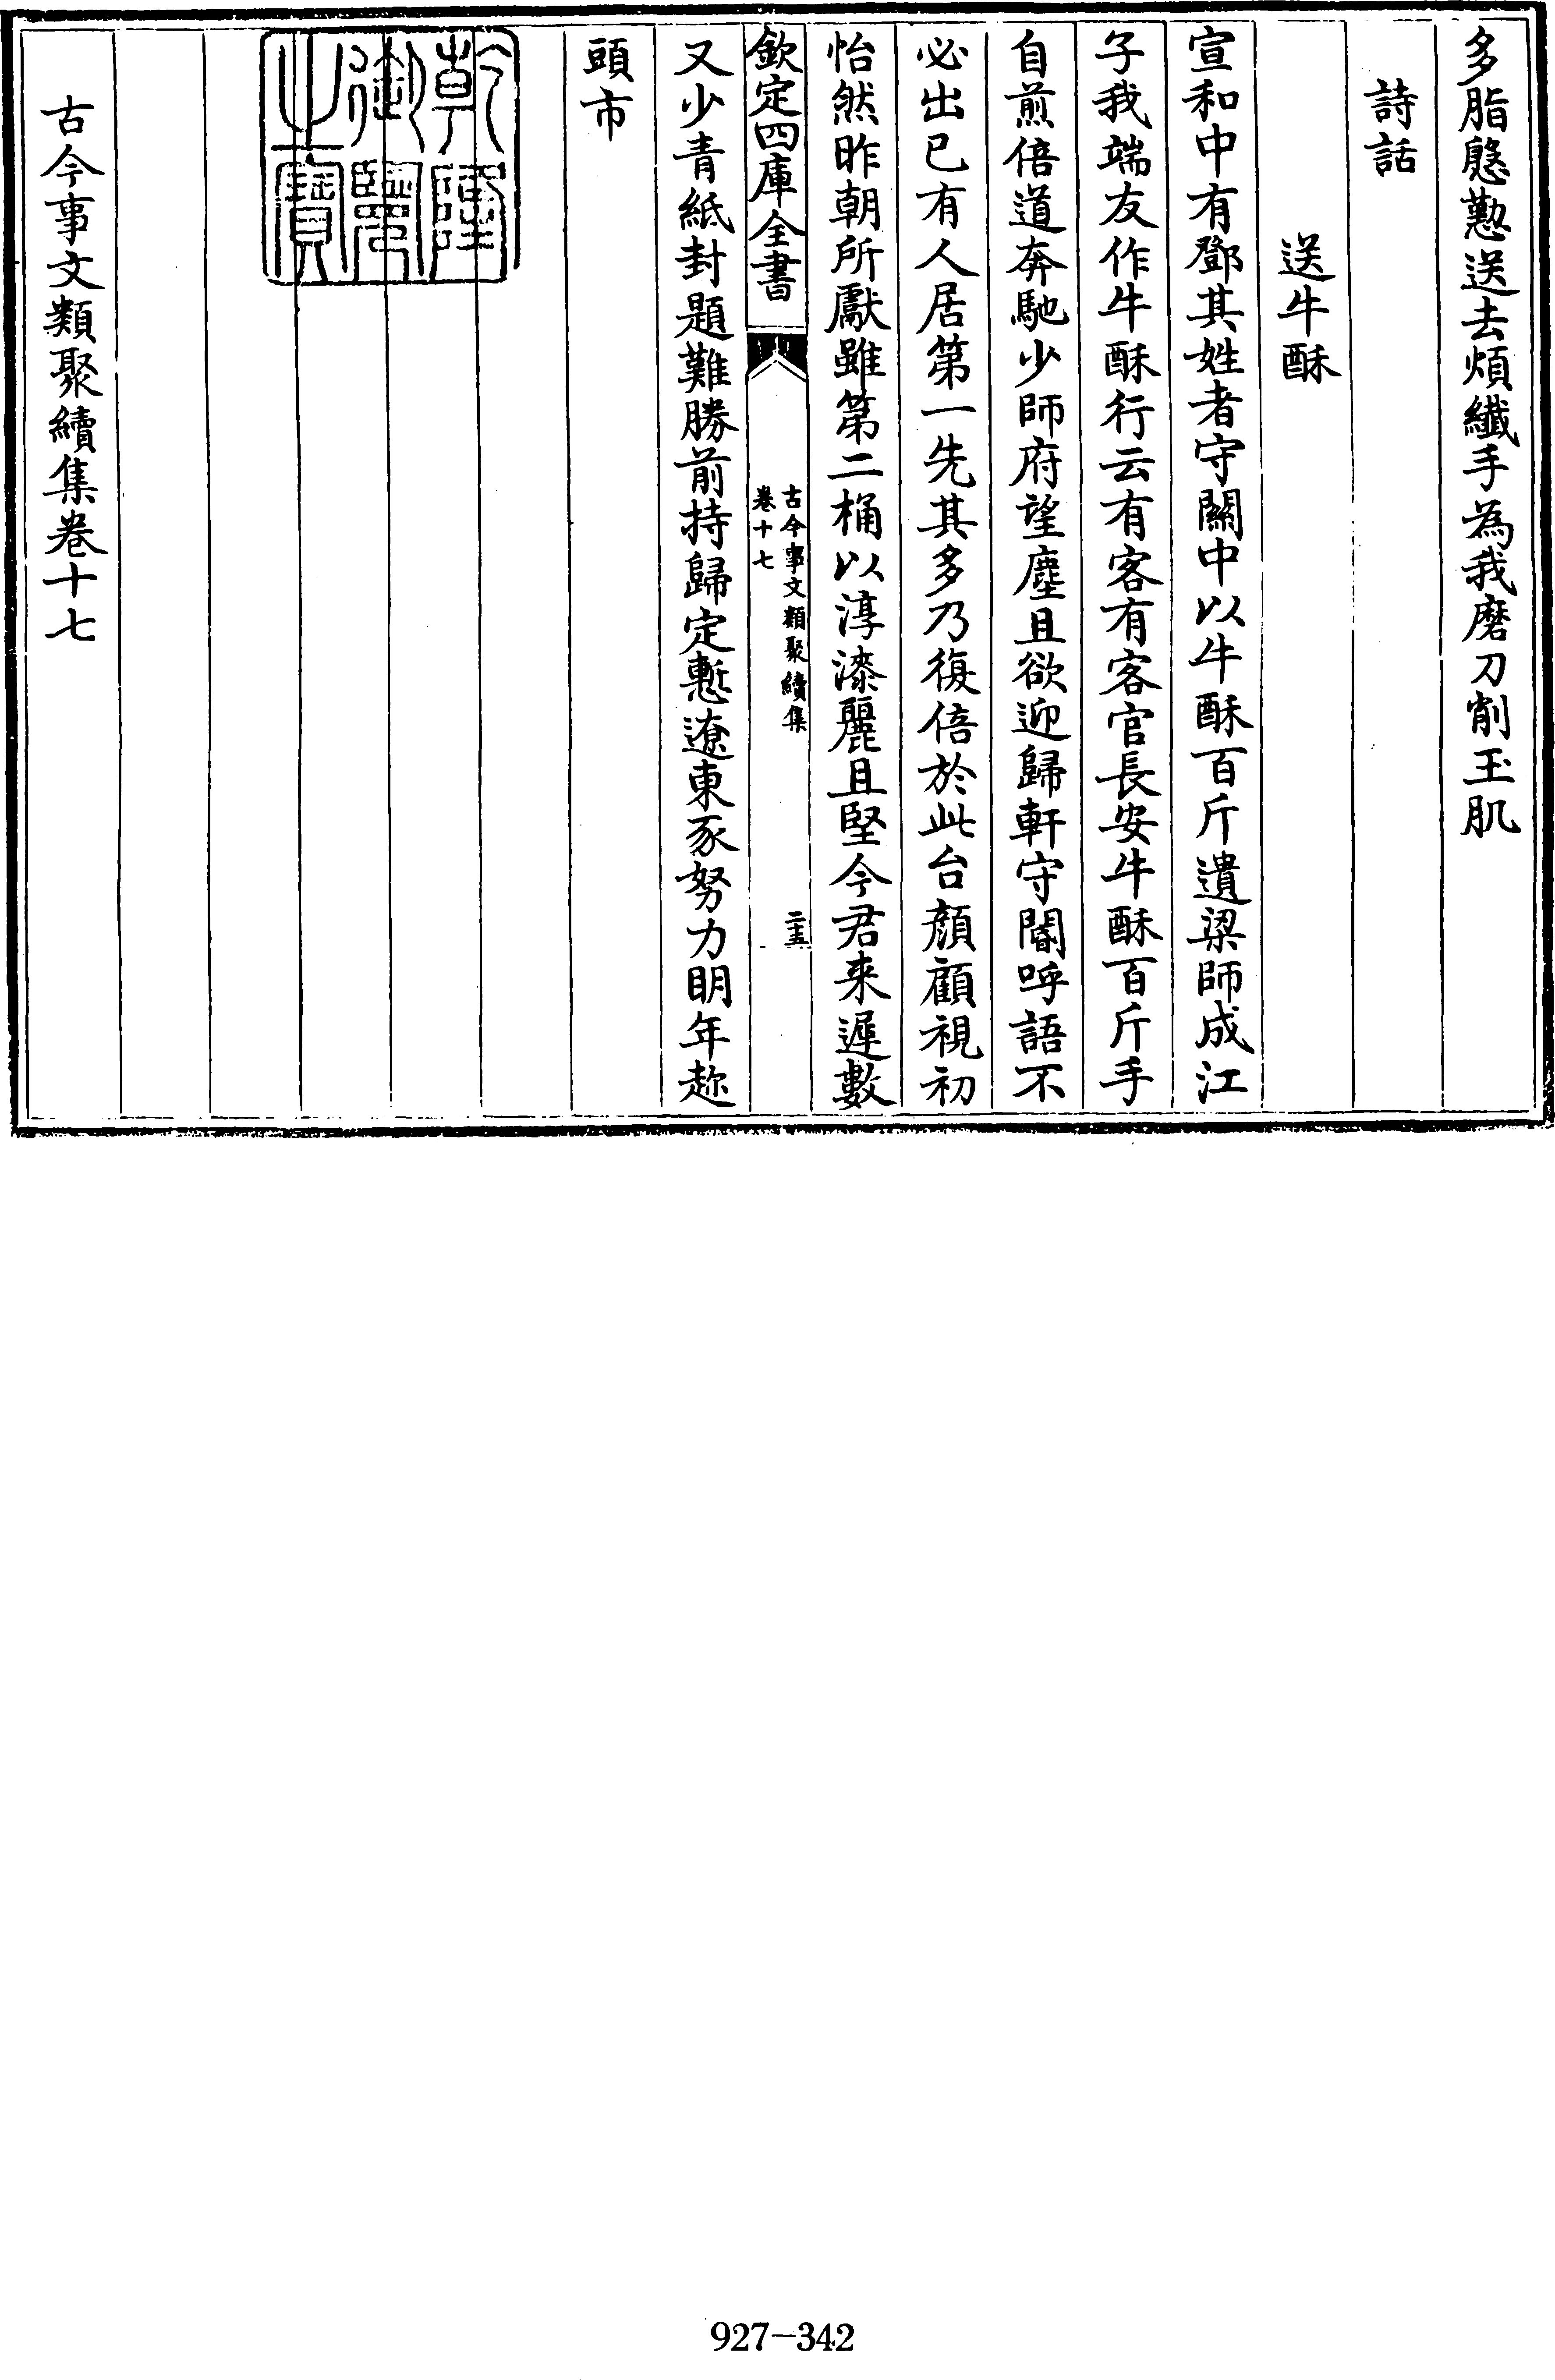 多脂慇懃送去煩纖手為我磨刀削玉肌
詩話
送牛酥
宣和中有鄧其姓者守關中以牛酥百斤遺梁師成江
子我端友作牛酥行云有客有客官長安牛酥百斤手
自煎倍道奔馳少師府望塵且欲迎歸軒守閽呼語不
必出已有人居第一先其多乃復倍於此台顏顧視初
怡然昨朝所獻雖第二桶以淳漆麗且堅今君來遲數
欽定四庫全書
古今事文類聚續集
卷十七
二十五
又少青紙封題難勝前持歸定慙遼東豕努力明年趂
頭市
乾隆御覽之寶
古今事文類聚續集卷十七
927-342